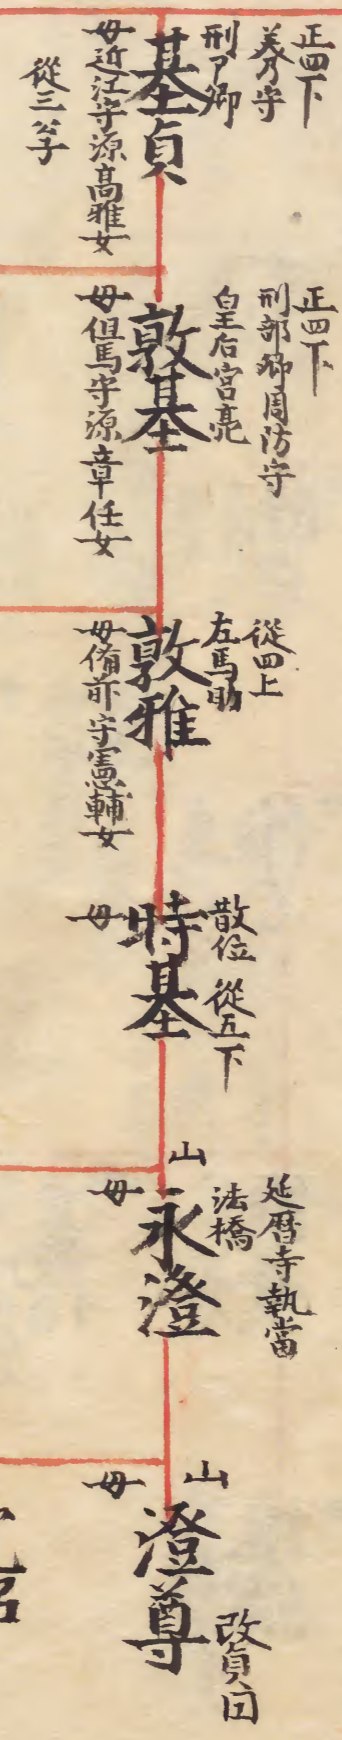 正四下
美乃守
刑卩卿
基貞
母近江守源高雅女
從三
正四下
刑部卿周防守
皇后宮亮
敦基
母但馬守源章任女
從四上
左馬助
敦雅
母備前守憲輔女
散位 從五下
時基
母
延暦寺執當
法橋
山
永澄
母
改貞円
山
澄尊
母